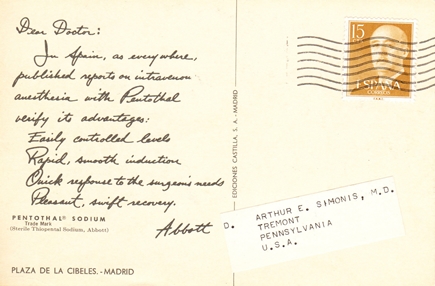 Dear Doctor:
In Spain, as everywhere,
published reports on intravenous
anesthesia with Pentothal
verify its advantages:
Easily controlled levels
Rapid, smooth induction
Quick response to the surgeon's needs
Pleasant, swift recovery.
Abbott
PENTOTHAL® SODIUM
Trade Mark
(Sterile Thiopental Sodium, Abbott)
PLAZA DE LA CIBELES.-MADRID
EDICIONES CASTILLA, S. A., MADRID
15
CTS
ESPAÑA
CORREOS
D.
ARTHUR E. SIMONIS, M.D.
TREMONT
PENNSYLVANIA
U.S.A.